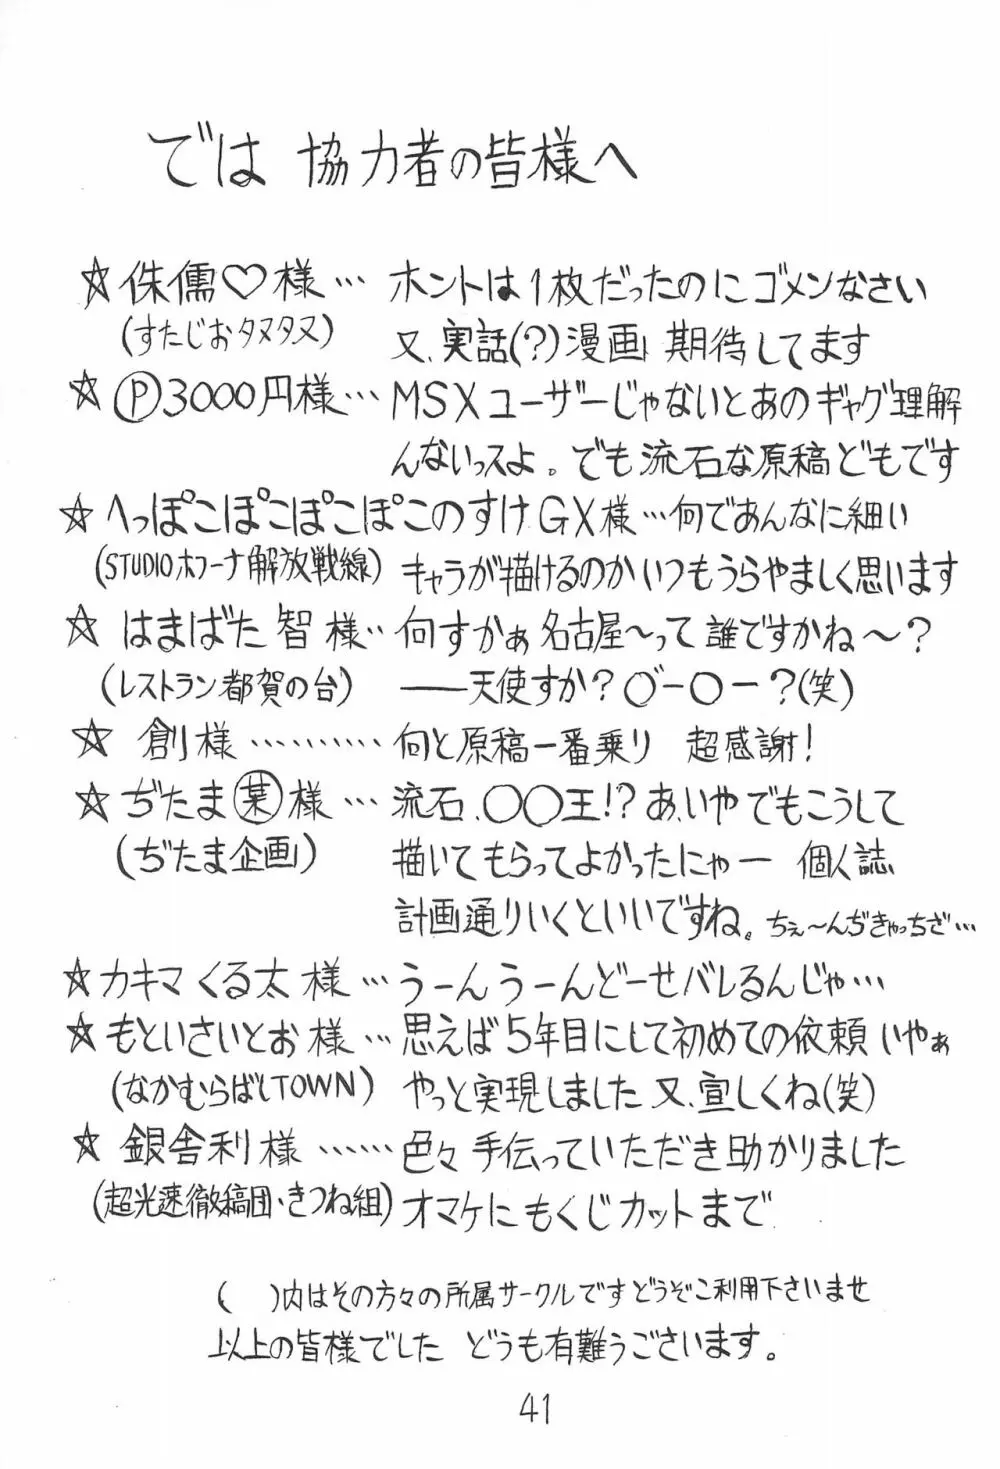 では 協力者の皆様へ
☆侏儒♡様… ホントは1枚だったのにゴメンなさい
(すたじおタヌタヌ) 又、実話(?)漫画 期待してます
☆Ⓟ3000円様… MSXユーザーじゃないとあのギャグ理解
んないっスよ。でも流石な原稿どもです
☆へっぽこぽこぽこぽこのすけGX様…何であんなに細い
(STUDIOホフーナ解放戦線) キャラが描けるのかいつもうらやましく思います
☆ はまばた 智 様‥何すかぁ名古屋〜って誰ですかね〜?
(レストラン都賀の台) ――天使すか?○゛ー○ー?(笑)
☆ 創様………… 何と原稿一番乗り 超感謝!
☆ぢたま㊥様… 流石、○○王!?あ、いやでもこうして
(ぢたま企画) 描いてもらってよかったにゃー 個人誌
計画通りいくといいですね。ちぇ〜んぢきゃっちざ…
☆カキマくる太様…うーんうーんどーせバレるんじゃ…
☆もといさいとお様…思えば5年目にして初めての依頼いやぁ
(なかむらばしTOWN) やっと実現しました又、宣しくね(笑)
☆ 銀舎利様……色々手伝っていただき助かりました
(超光速徹稿団・きつね組) オマケにもくじカットまで
( )内はその方々の所属サークルですどうぞご利用下さいませ
以上の皆様でした どうも有難うございます。
41